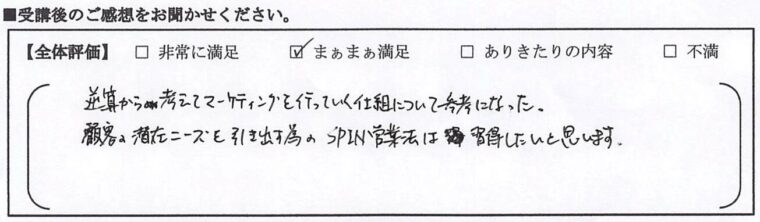 ■受講後のご感想をお聞かせください。
【全体評価】 □ 非常に満足 ☑ まぁまぁ満足 □ ありきたりの内容 □ 不満
逆算から考えてマーケティングを行っていく仕組について参考になった。
顧客の潜在ニーズを引き出す為の SPIN営業法は 習得したいと思います。